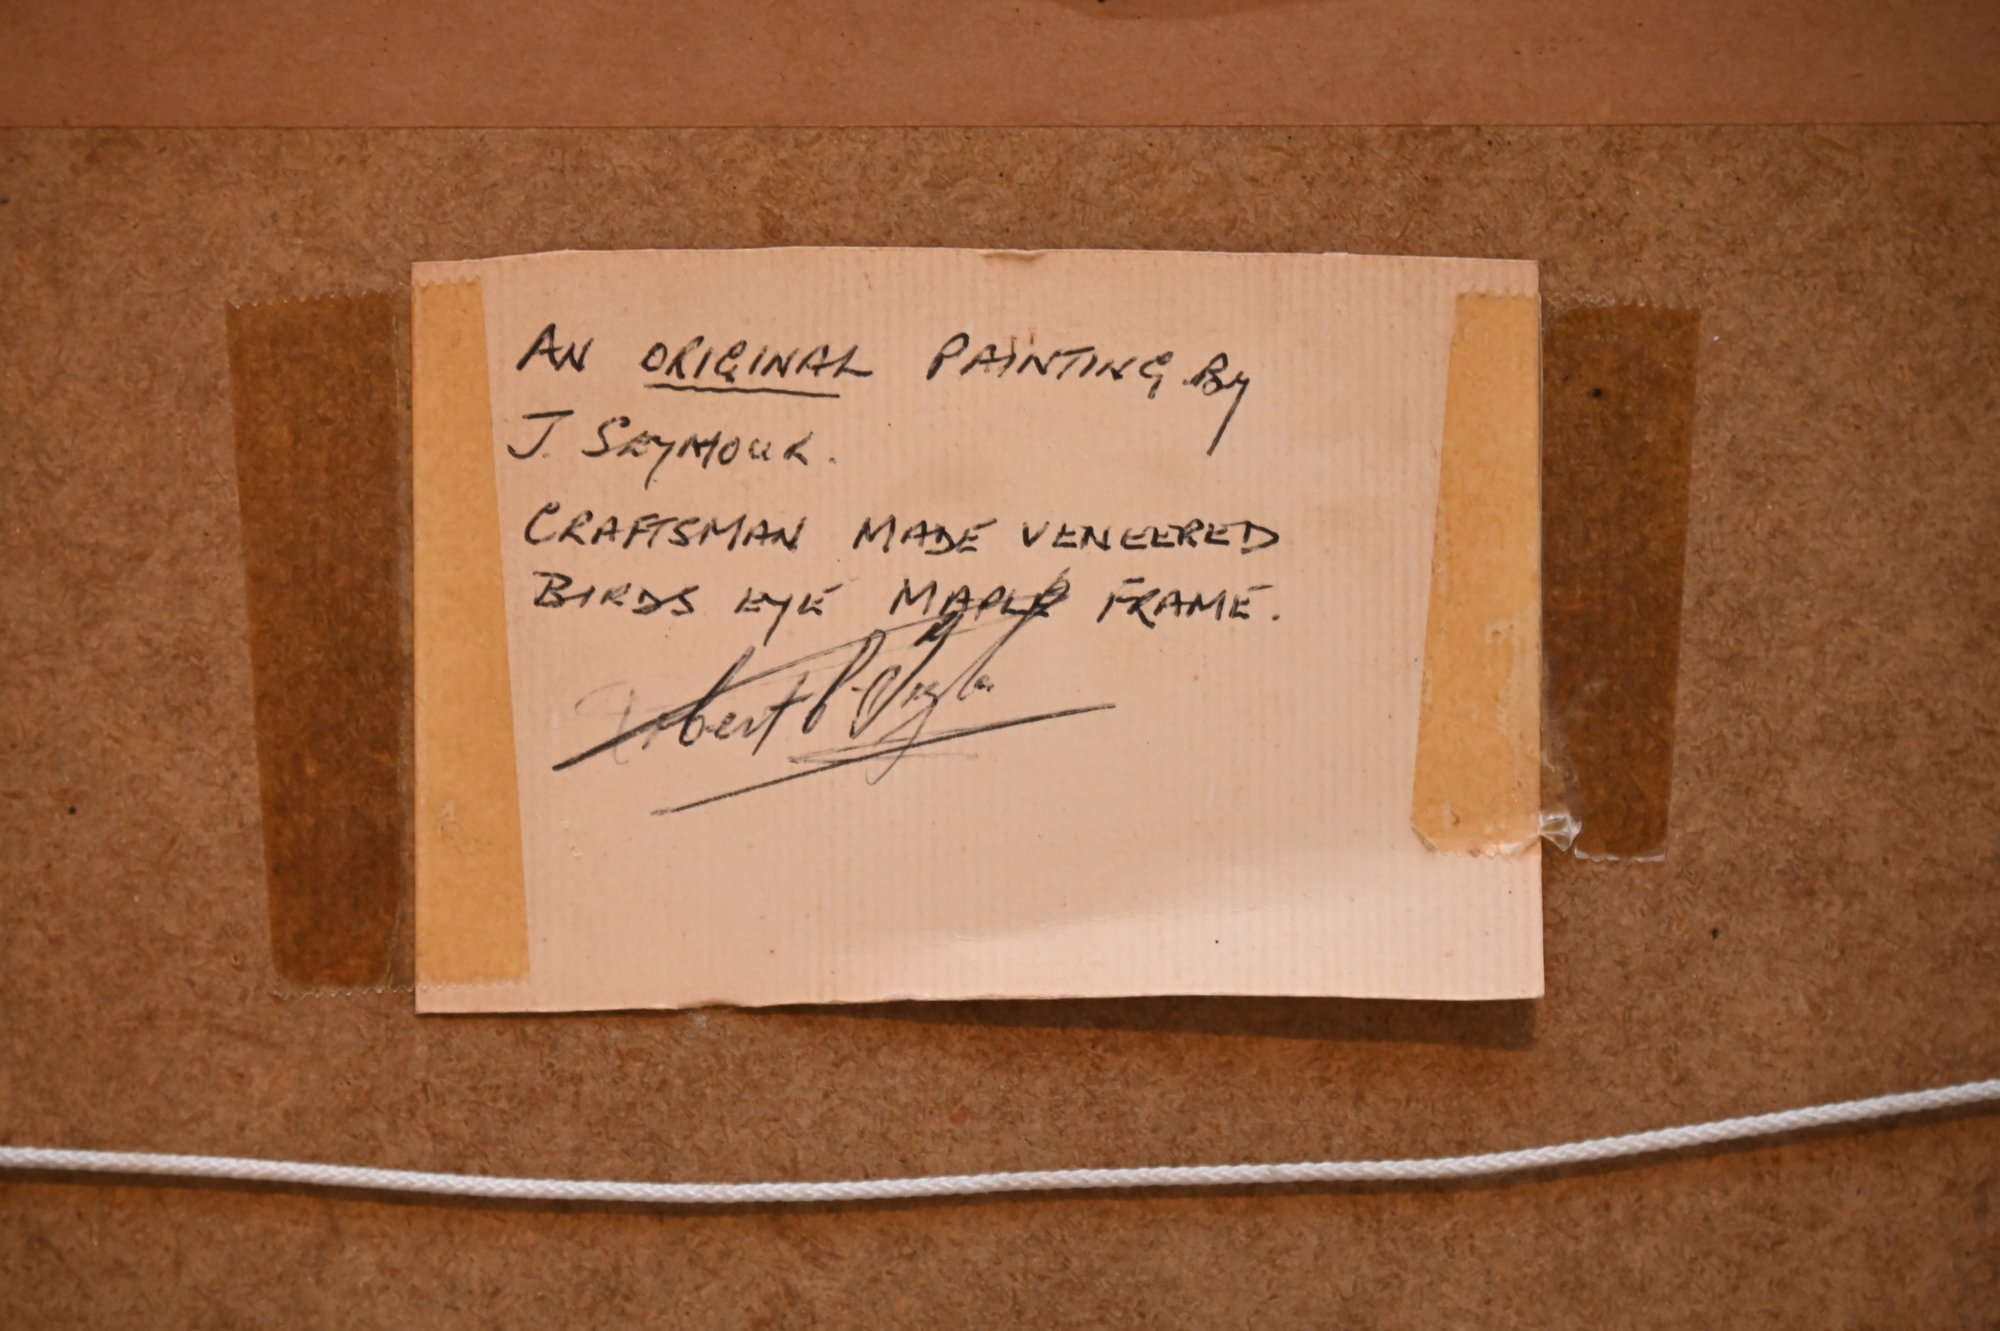 AN ORIGINAL PAINTING By
J. SEYMOUR.
CRAFTSMAN MADE VENEERED
BIRDS EYE MAPLE FRAME.
Robert